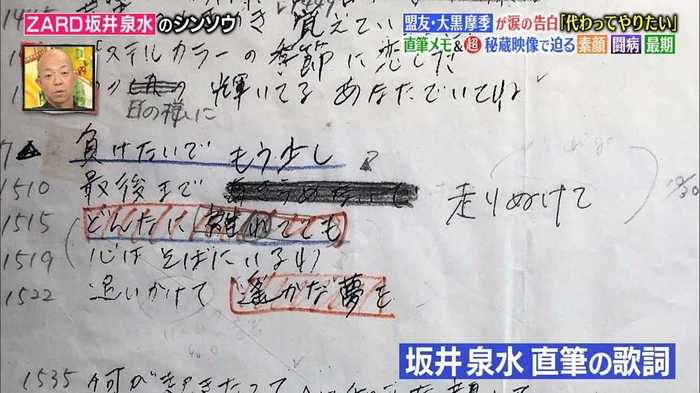 ZARD坂井泉水のシンソウ
盟友・大黒摩季が涙の告白「代わってやりたい」
直筆メモ&超秘蔵映像で迫る 素顔 闘病 最期
覚えてい
ステルカラーの季節に恋した
の 輝いてる あなたでいてね
日の様に
負けないで もう少し
1510 最後まで 走りぬけて
1515 どんなに 離れてても
1519 (心はそばにいるわ)
1522 追いかけて 遥かな夢を
1535 何が起きたって
坂井泉水 直筆の歌詞